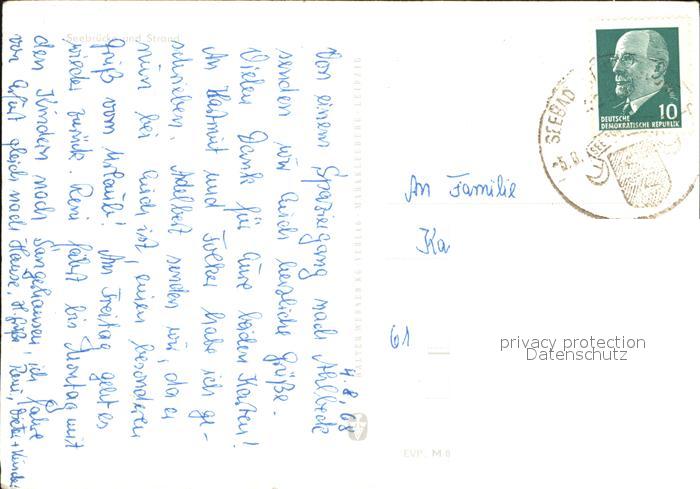 Seebrücke und Strand
4.8.68
Von einem Spaziergang nach Ahlbeck
senden wir Euch herzliche Grüße.
Vielen Dank für Eure beiden Karten!
An Hartmut und Volker habe ich ge-
schrieben. Adelbert senden wir, da er
nun bei Euch ist, einen besonderen
Gruß vom Urlaub! Am Freitag geht es
wieder zurück. Reni fährt bis Montag mit
den Kindern nach Sangerhausen, ich fahre
von Erfurt gleich nach Hause. H. Grüße Reni, Dieter + Kinder
WALTER WERNER KG VERLAG MARKKLEEBERG LEIPZIG
DEUTSCHE
DEMOKRATISCHE REPUBLIK
10
SEEBAD
An Familie
Ka
61
privacy protection
Datenschutz
EVP. M-8